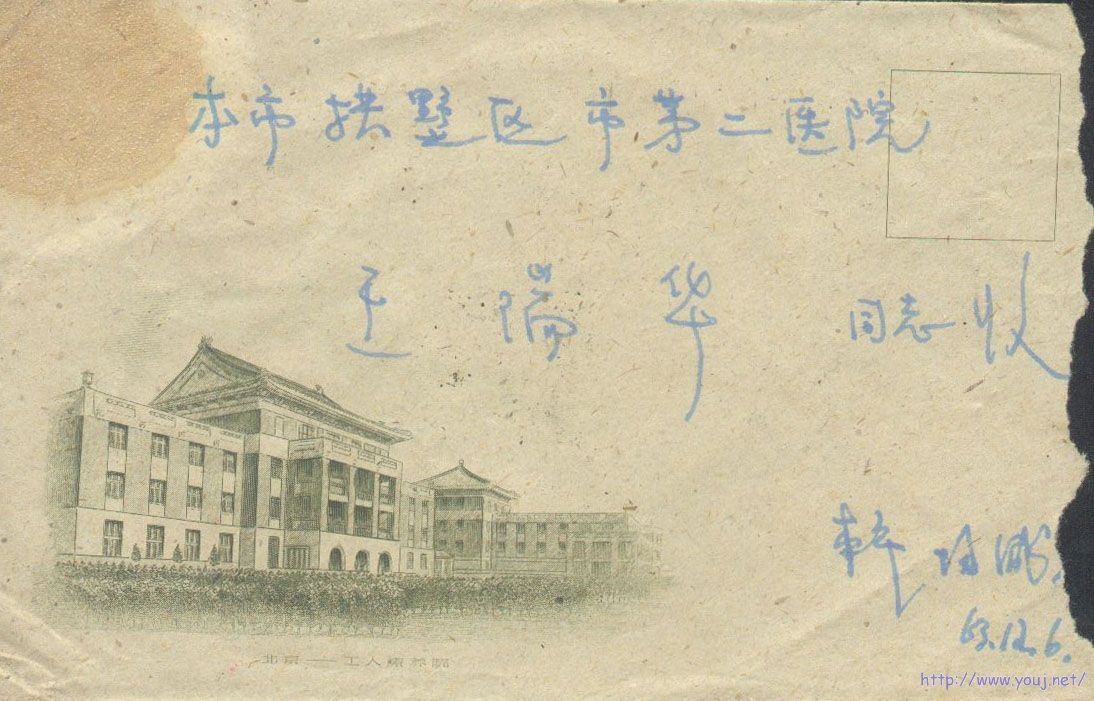 本市拱墅区市第二医院
王瑞华 同志收
63.12.6.
北京——工人疗养院
http://www.youj.net/